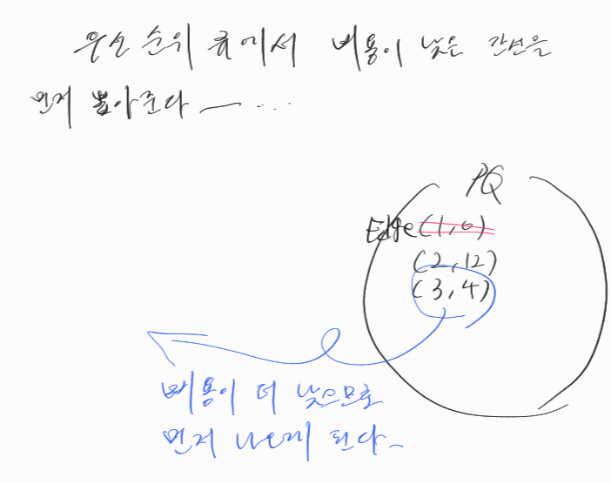 우선 순위 큐에서 비용이 낮은 간선을
먼저 뽑아준다 ㅡ ...
PQ
Edge(1,0)
(2,12)
(3,4)
비용이 더 낮으므로
먼저 나오게 된다~